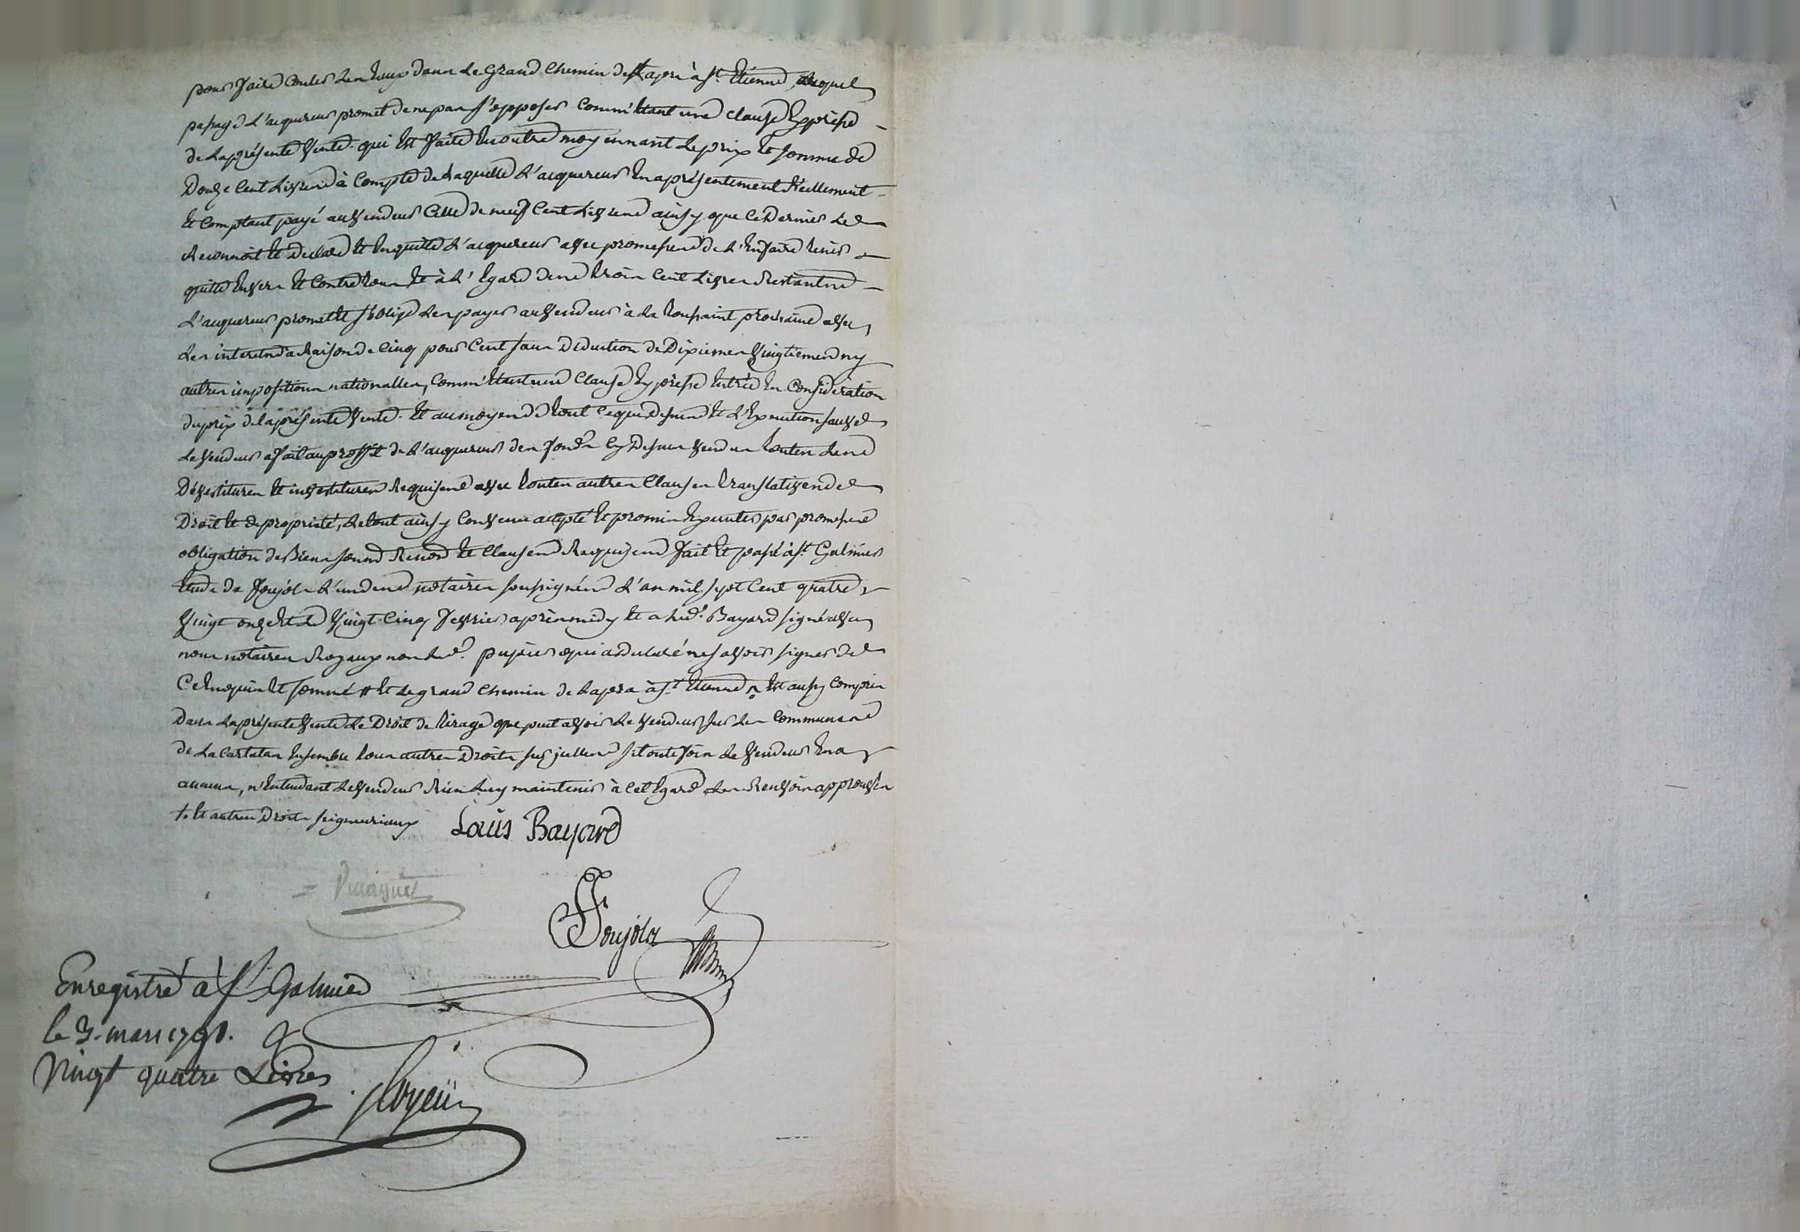 pour faire couler les Eaux dans le Grand Chemin de Lapra à st. Etienne, auquel
passage L'acquereur promet de ne pas s'opposer comm'Etant une clause Expresse
de la présente Vente qui Est faite En outre moyennant le prix Et somme de
Douze Cent Livres à Compte de Laquelle L'acquereur En a présentement Réellement
Et Comptant payé au Vendeur Celle de neuf Cent Livres ainsy que Ce Dernier Le
Reconnoit Et Declare Et En quitte L'acquereur avec promesse de L'En faire tenir
quitte Envers Et Contre tous Et à L'Egard des trois Cent Livres Restantes
L'acquereur promet Et s'oblige Les payer au Vendeur à La toussaint prochaine avec
Les interets à Raison de Cinq pour Cent sans Deduction de Dixiemes Vingtiemes ny
autres impositions nationalles, Comm'Etant une Clause Expresse Entrée En Considération
du prix de la présente Vente. Et au moyen de tout Ce que Dessus Et L'Execution sauve
Le Vendeur a fait au proffit de L'acquereur des fonds Cy Dessus Vendus toutes Les
Dévestitures Et investitures Requises avec toutes autres Clauses translatives de
Droit Et de propriété, Le tout ainsy Convenu accepté Et promis Executer par promesse
obligation de Biens soumis Renon Et Clauses Requises fait Et passé à st. Galmier
Etude de Foujols L'un des notaires soussignés L'an mil sept Cent quatre
Vingt onze Et Le Vingt Cinq Fevrier après midy Et a Led. Bayard signé avec
nous notaires Royaux non Led. qui a declaré ne savoir signer de
Ce Enquis Et sommé # Et Le grand Chemin de Lapra à st. Etienne Est aussy Compris
Dans La présente Vente Le Droit de tirage que peut avoir Le Vendeur sur Les Communes
de La Ensemble tous autres Droits sur Le Vendeur En a
aucun, n'Entendant Le Vendeur Rien Luy maintenir à Cet Egard Les Renvois approuvés
+ Et autres Droits seigneuriaux
Louis Bayard
Foujols
Enregistré à st Galmier
le 3. mars 1791.
Vingt quatre Livres